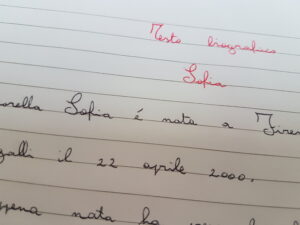 Testo biografico
Sofia
orella Sofia é nata a Firen
galli il 22 aprile 2000.
ppena nata ha